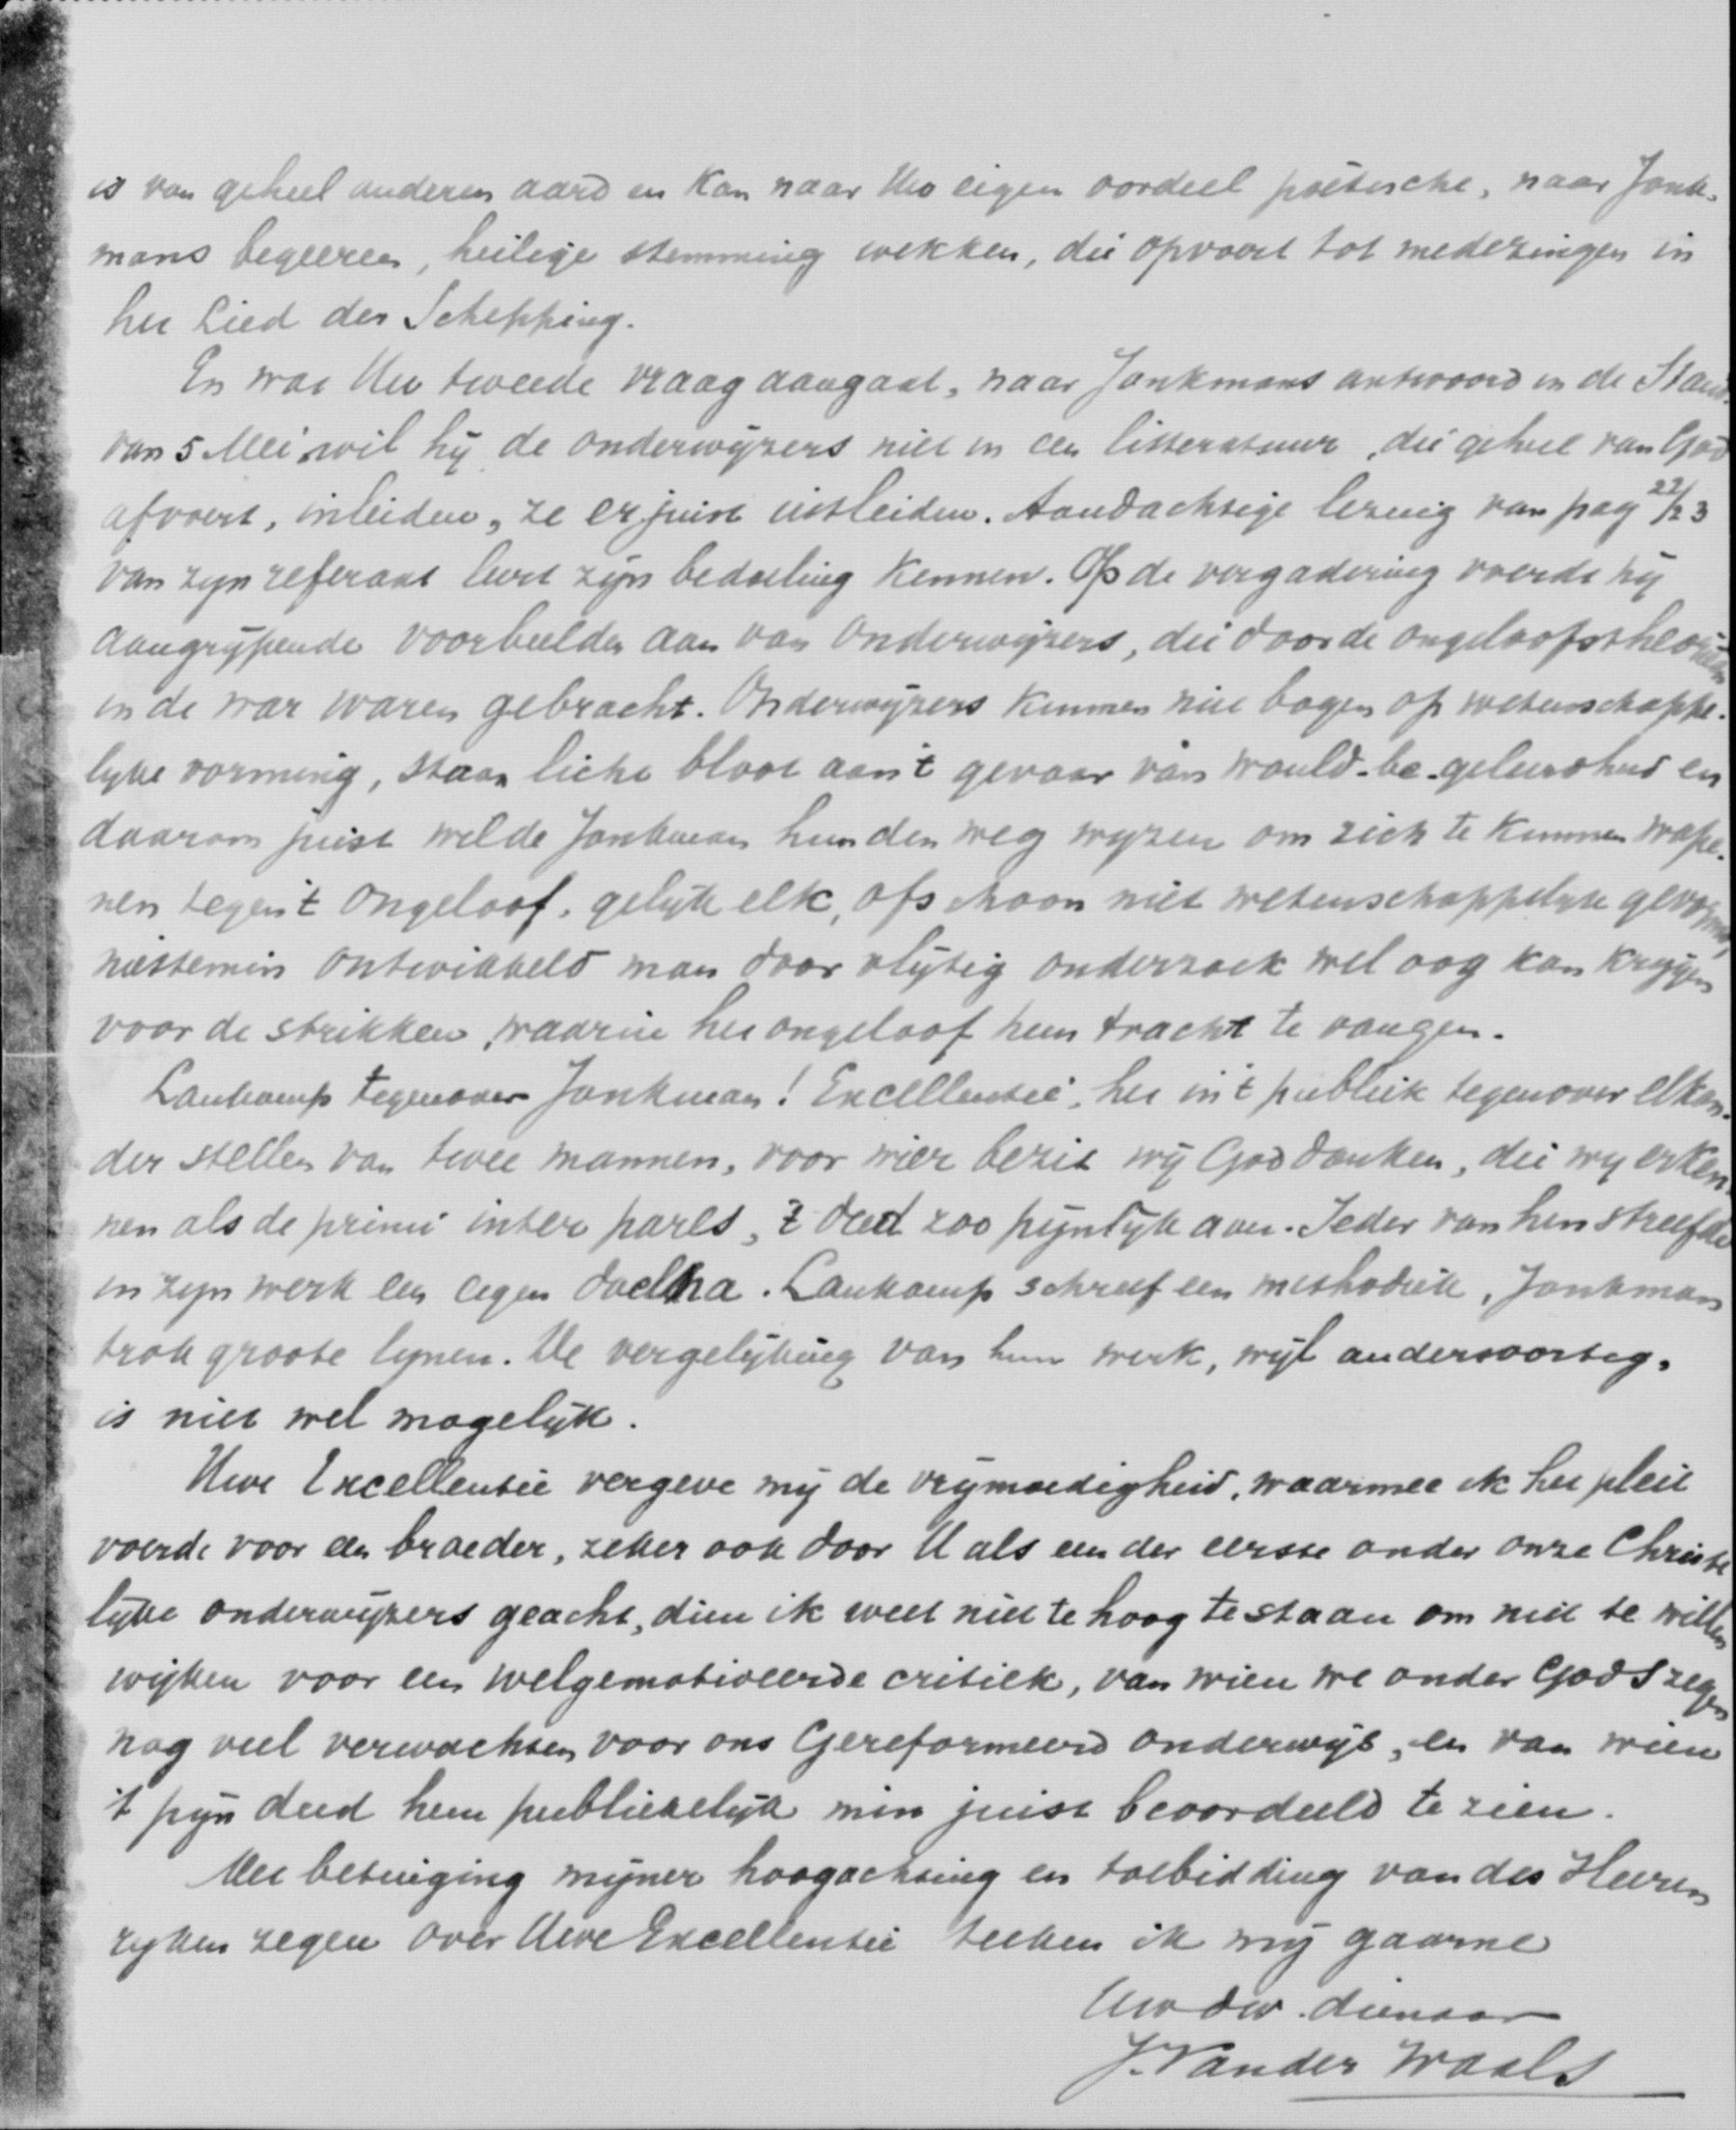 is van geheel anderen aard en kan naar Uw eigen oordeel poëtische, naar Jonk-
mans begeeren, heilige stemming wekken, die opvoert tot medezingen in
het Lied der Schepping.
En wat Uw tweede vraag aangaat, naar Jonkmans antwoord in de Stand.
van 5 Mei wil hij de onderwijzers niet in een litteratuur, die geheel van God
afvoert, inleiden, ze er juist uitleiden. Aandachtige lezing van pag 22/23
van zijn referaat leert zijn bedoeling kennen. Op de vergadering voerde hij
aangrijpende voorbeelden aan van onderwijzers, die door de ongeloofstheorieën
in de war waren gebracht. Onderwijzers kunnen niet bogen op wetenschappe-
lijke vorming, staan licht bloot aan 't gevaar van would-be-geleerdheid en
daarom juist wilde Jonkman hun den weg wijzen om zich te kunnen wape-
nen tegen 't ongeloof, gelijk elk, ofschoon niet wetenschappelijk gevormd,
niettemin ontwikkeld man door vlijtig onderzoek wel oog kan krijgen
voor de strikken, waarin het ongeloof hem tracht te vangen.
Lankamp tegenover Jonkman! Excellentie, het in 't publiek tegenover elkan-
der stellen van twee mannen, voor wier bezit wij God danken, die wij erken-
nen als de primi inter pares, 't deed zoo pijnlijk aan. Ieder van hen streefde
in zijn werk een eigen doel na. Lankamp schreef een methodiek, Jonkman
trok groote lijnen. De vergelijking van hun werk, wijl andersoortig,
is niet wel mogelijk.
Uwe Excellentie vergeve mij de vrijmoedigheid, waarmee ik het pleit
voerde voor een broeder, zeker ook door U als een der eerste onder onze Christe
lijke onderwijzers geacht, dien ik weet niet te hoog te staan om niet te willen
wijken voor een welgemotiveerde critiek, van wien we onder Gods zegen
nog veel verwachten voor ons Gereformeerd onderwijs, en van wien
't pijn deed hem publiekelijk min juist beoordeeld te zien.
Met betuiging mijner hoogachting en toebidding van des Heeren
rijken zegen over Uwe Excellentie teeken ik mij gaarne
Uw dw. dienaar
J. Van der Waals